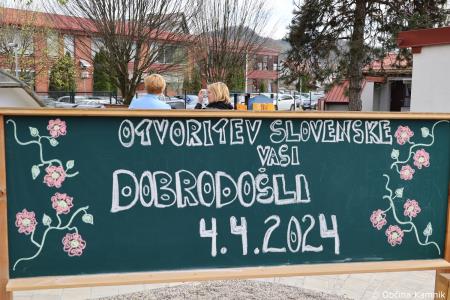 OTVORITEV SLOVENSKE
VASI
DOBRODOŠLI
4.4.2024
© Občina Kamnik